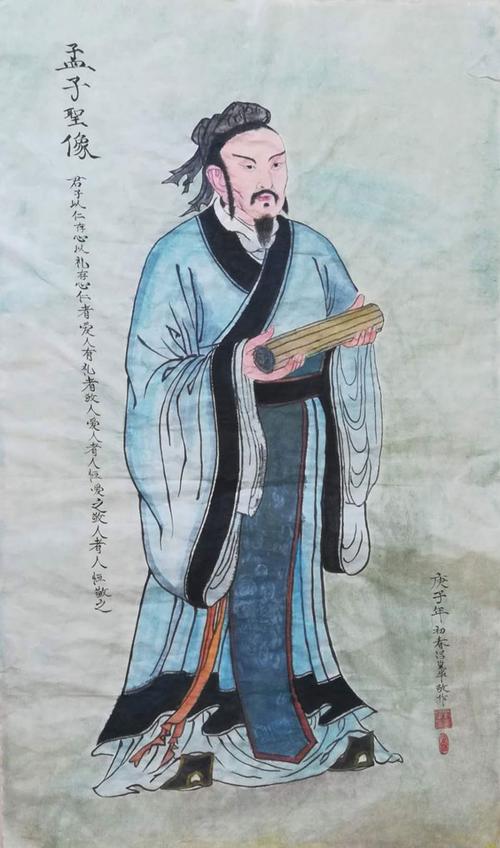 孟子聖像
君子以仁存心以礼存心仁者爱人有礼者敬人爱人者人恒爱之敬人者人恒敬之
庚子年初春